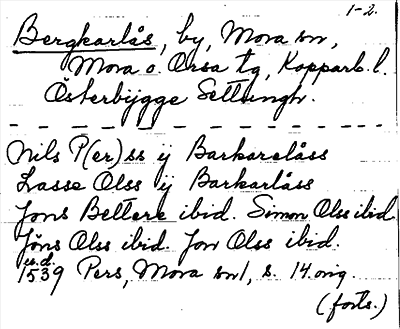 1-2.
Bergkarlås, by, Mora sn,
Mora o. Orsa tg, Kopparb. l.
Österbygge Settungh.
Nils P(er)ss ij Barkarelåss
Lasse Olss ij Barkarlåss
Jons Bettere ibid. Simon Olss ibid
Jöns Olss ibid. Jon Olss ibid.
u.d.
1539 Pers, Mora sn1, s. 14 orig.
(forts.)